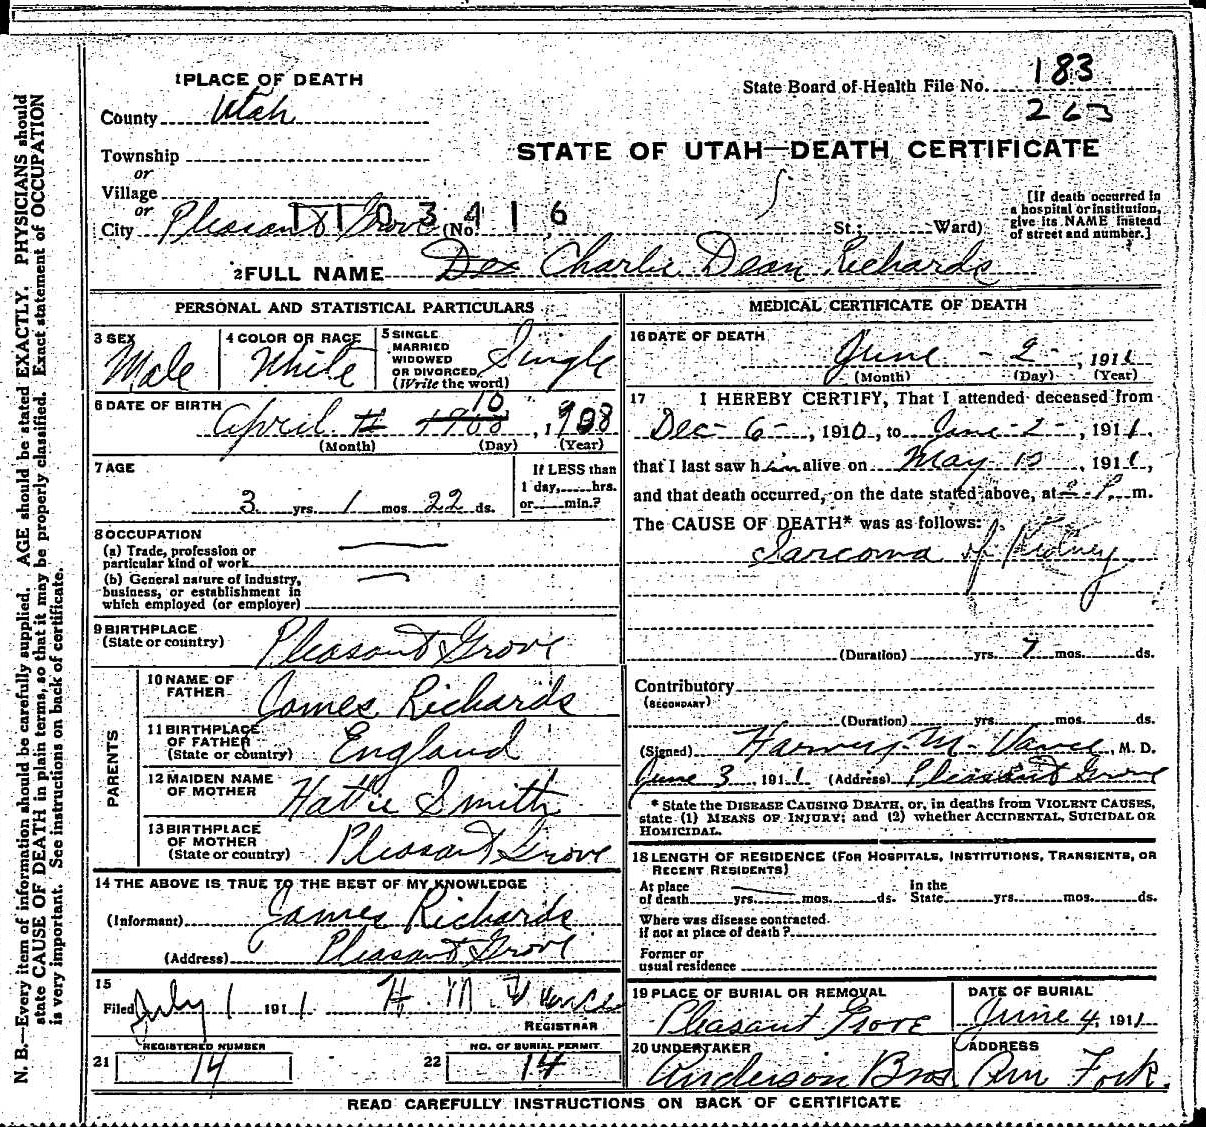 1 PLACE OF DEATH
State Board of Health File No. 183
263
County Utah
STATE OF UTAH—DEATH CERTIFICATE
Township
or
Village
or
City Pleasant Grove (No. St.; Ward)
1103416
[If death occurred in a hospital or institution, give its NAME instead of street and number.]
2 FULL NAME Charlie Dean Richards
PERSONAL AND STATISTICAL PARTICULARS
3 SEX
Male
4 COLOR OR RACE
White
5 SINGLE
MARRIED
WIDOWED
OR DIVORCED
(Write the word)
Single
6 DATE OF BIRTH
April 10, 1908
(Month) (Day) (Year)
7 AGE
3 yrs. 1 mos. 22 ds.
If LESS than
1 day, hrs.
or min.?
8 OCCUPATION
(a) Trade, profession or
particular kind of work
(b) General nature of industry,
business, or establishment in
which employed (or employer)
9 BIRTHPLACE
(State or country) Pleasant Grove
PARENTS
10 NAME OF
FATHER James Richards
11 BIRTHPLACE
OF FATHER
(State or country) England
12 MAIDEN NAME
OF MOTHER Hattie Smith
13 BIRTHPLACE
OF MOTHER
(State or country) Pleasant Grove
14 THE ABOVE IS TRUE TO THE BEST OF MY KNOWLEDGE
(Informant) James Richards
(Address) Pleasant Grove
15
Filed July 1 1911 H. M. Vance
REGISTRAR
REGISTERED NUMBER
21 14
NO. OF BURIAL PERMIT
22 14
MEDICAL CERTIFICATE OF DEATH
16 DATE OF DEATH
June - 2 -, 1911
(Month) (Day) (Year)
17 I HEREBY CERTIFY, That I attended deceased from
Dec - 6 -, 1910, to June - 2 -, 1911,
that I last saw him alive on May, 1911,
and that death occurred, on the date stated above, at P. m.
The CAUSE OF DEATH* was as follows:
Sarcoma of Kidney
(Duration) yrs. 7 mos. ds.
Contributory
(SECONDARY)
(Duration) yrs. mos. ds.
(Signed) Harvey M. Vance, M. D.
June 3, 1911 (Address) Pleasant Grove
* State the DISEASE CAUSING DEATH, or, in deaths from VIOLENT CAUSES,
state (1) MEANS OF INJURY; and (2) whether ACCIDENTAL, SUICIDAL OR
HOMICIDAL.
18 LENGTH OF RESIDENCE (FOR HOSPITALS, INSTITUTIONS, TRANSIENTS, OR
RECENT RESIDENTS)
At place In the
of death yrs. mos. ds. State yrs. mos. ds.
Where was disease contracted.
if not at place of death?
Former or
usual residence
19 PLACE OF BURIAL OR REMOVAL
Pleasant Grove
DATE OF BURIAL
June 4, 1911
20 UNDERTAKER
Anderson Bros.
ADDRESS
Am Fork.
READ CAREFULLY INSTRUCTIONS ON BACK OF CERTIFICATE
N. B.—Every item of information should be carefully supplied. AGE should be stated EXACTLY. PHYSICIANS should
state CAUSE OF DEATH in plain terms, so that it may be properly classified. Exact statement of OCCUPATION
is very important. See instructions on back of certificate.